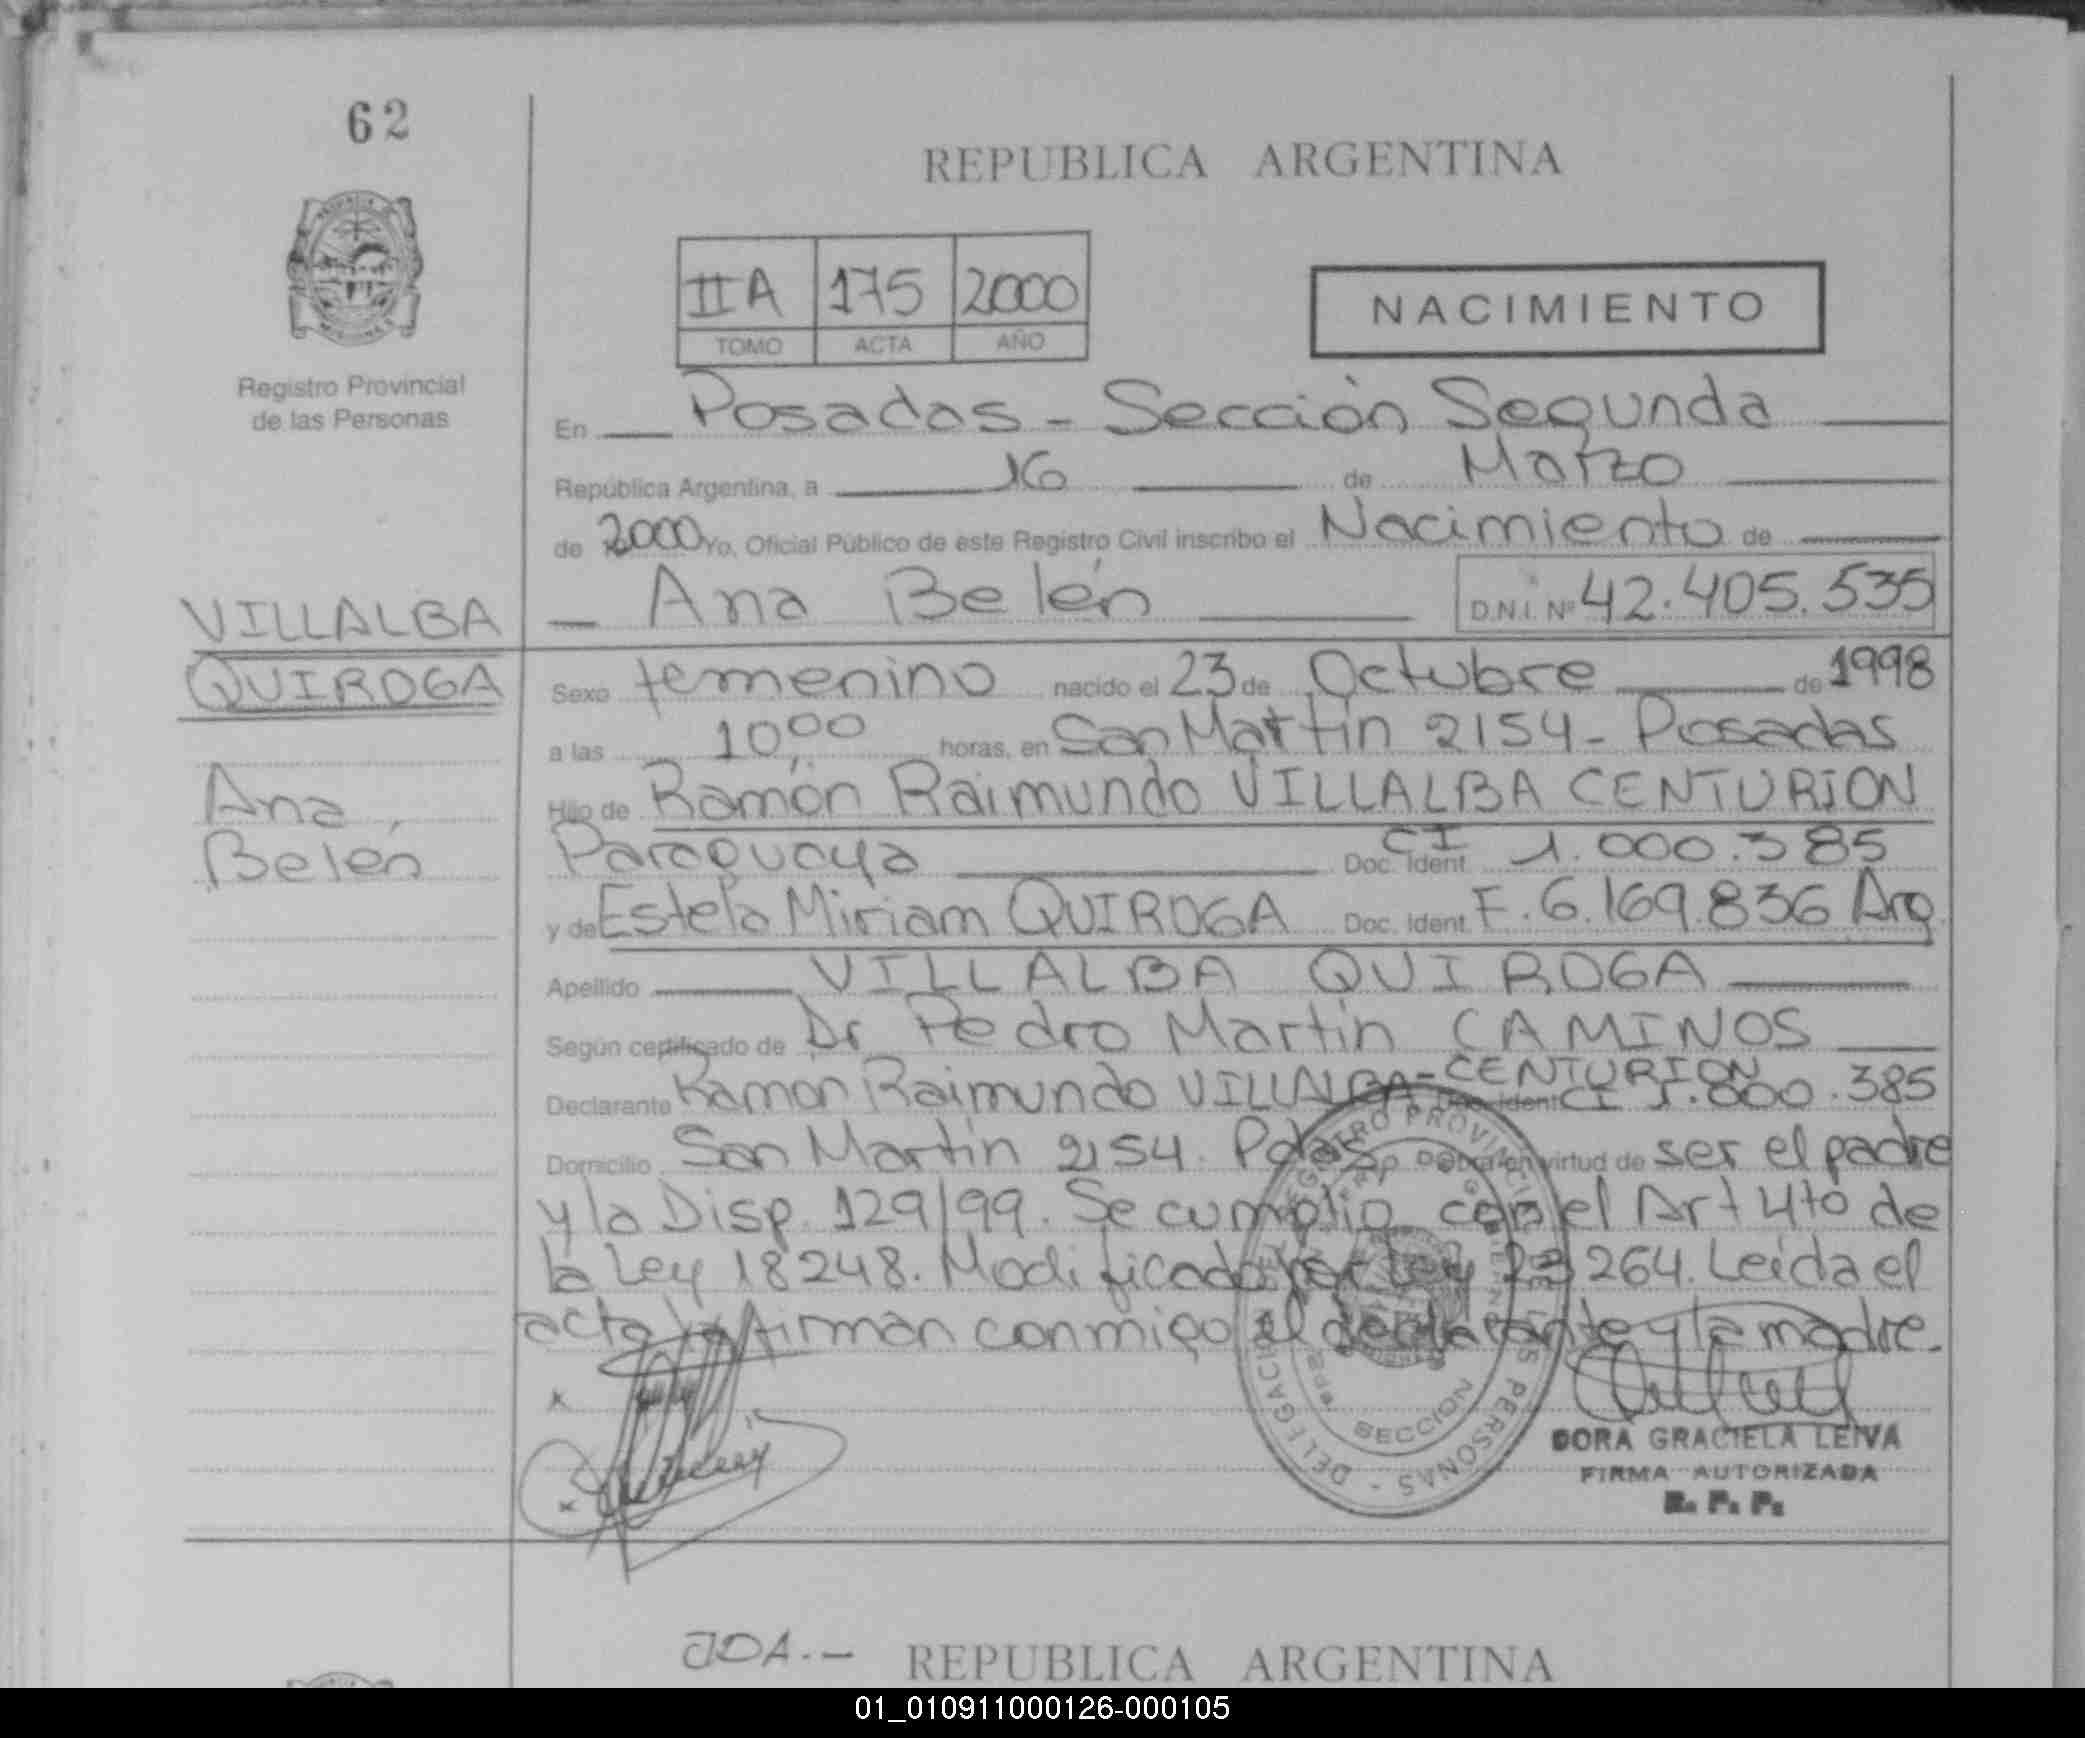 62
REPUBLICA ARGENTINA
IIA 175 2000
TOMO ACTA AÑO
NACIMIENTO
Registro Provincial
de las Personas
En Posadas - Sección Segunda
República Argentina, a 16 de Marzo
de 2000 Yo, Oficial Público de este Registro Civil inscribo el Nacimiento de
Ana Belén D.N.I. Nº 42.405.535
VILLALBA
QUIROGA
Ana
Belén
Sexo femenino nacido el 23 de Octubre de 1998
a las 10,00 horas, en San Martín 2154 - Posadas
Hijo de Ramón Raimundo VILLALBA CENTURION
Paraguaya Doc. Ident. CI 1.000.385
y de Estela Miriam QUIROGA Doc. Ident. F. 6.169.836 Arg
Apellido VILLALBA QUIROGA
Según certificado de Dr Pedro Martín CAMINOS
Declarante Ramon Raimundo VILLALBA - CENTURION Doc. Ident CI 1.000.385
Domicilio San Martín 2154. Pdas Obra en virtud de ser el padre
y la Disp. 129/99. Se cumplio con el Art 4to de
la Ley 18248. Modificado por Ley 23264. Leída el
acta la firman conmigo el declarante y la madre.
DELEGACION REGISTRO PROVINCIAL DE LAS PERSONAS
SECCION
DORA GRACIELA LEIVA
FIRMA AUTORIZADA
R. P. P.
JOA.-
REPUBLICA ARGENTINA
01_010911000126-000105